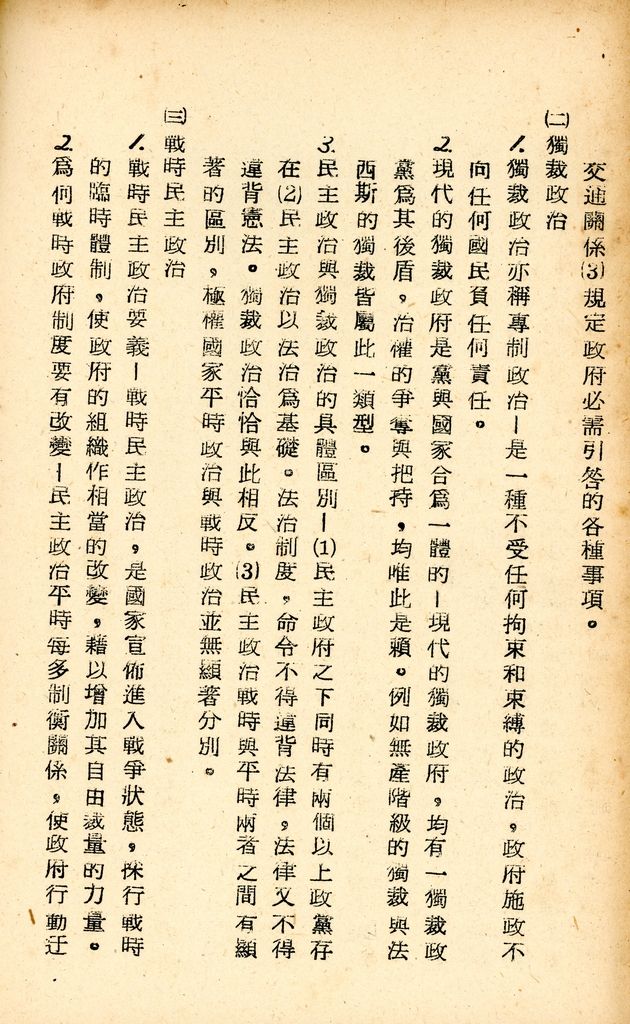 交通關係(3)規定政府必需引咎的各種事項。
(二)獨裁政治
1.獨裁政治亦稱專制政治—是一種不受任何拘束和束縛的政治,政府施政不
向任何國民負任何責任。
2.現代的獨裁政府是黨與國家合爲一體的—現代的獨裁政府,均有一獨裁政
黨爲其後盾,治權的爭奪與把持,均唯此是賴。例如無產階級的獨裁與法
西斯的獨裁皆屬此一類型。
3.民主政治與獨裁政治的具體區別—(1)民主政府之下同時有兩個以上政黨存
在(2)民主政治以法治爲基礎。法治制度,命令不得違背法律,法律又不得
違背憲法。獨裁政治恰恰與此相反。(3)民主政治戰時與平時兩者之間有顯
著的區別,極權國家平時政治與戰時政治並無顯著分別。
(三)戰時民主政治
1.戰時民主政治要義—戰時民主政治,是國家宣佈進入戰爭狀態,採行戰時
的臨時體制,使政府的組織作相當的改變,藉以增加其自由裁量的力量。
2.爲何戰時政府制度要有改變—民主政治平時每多制衡關係,使政府行動迂